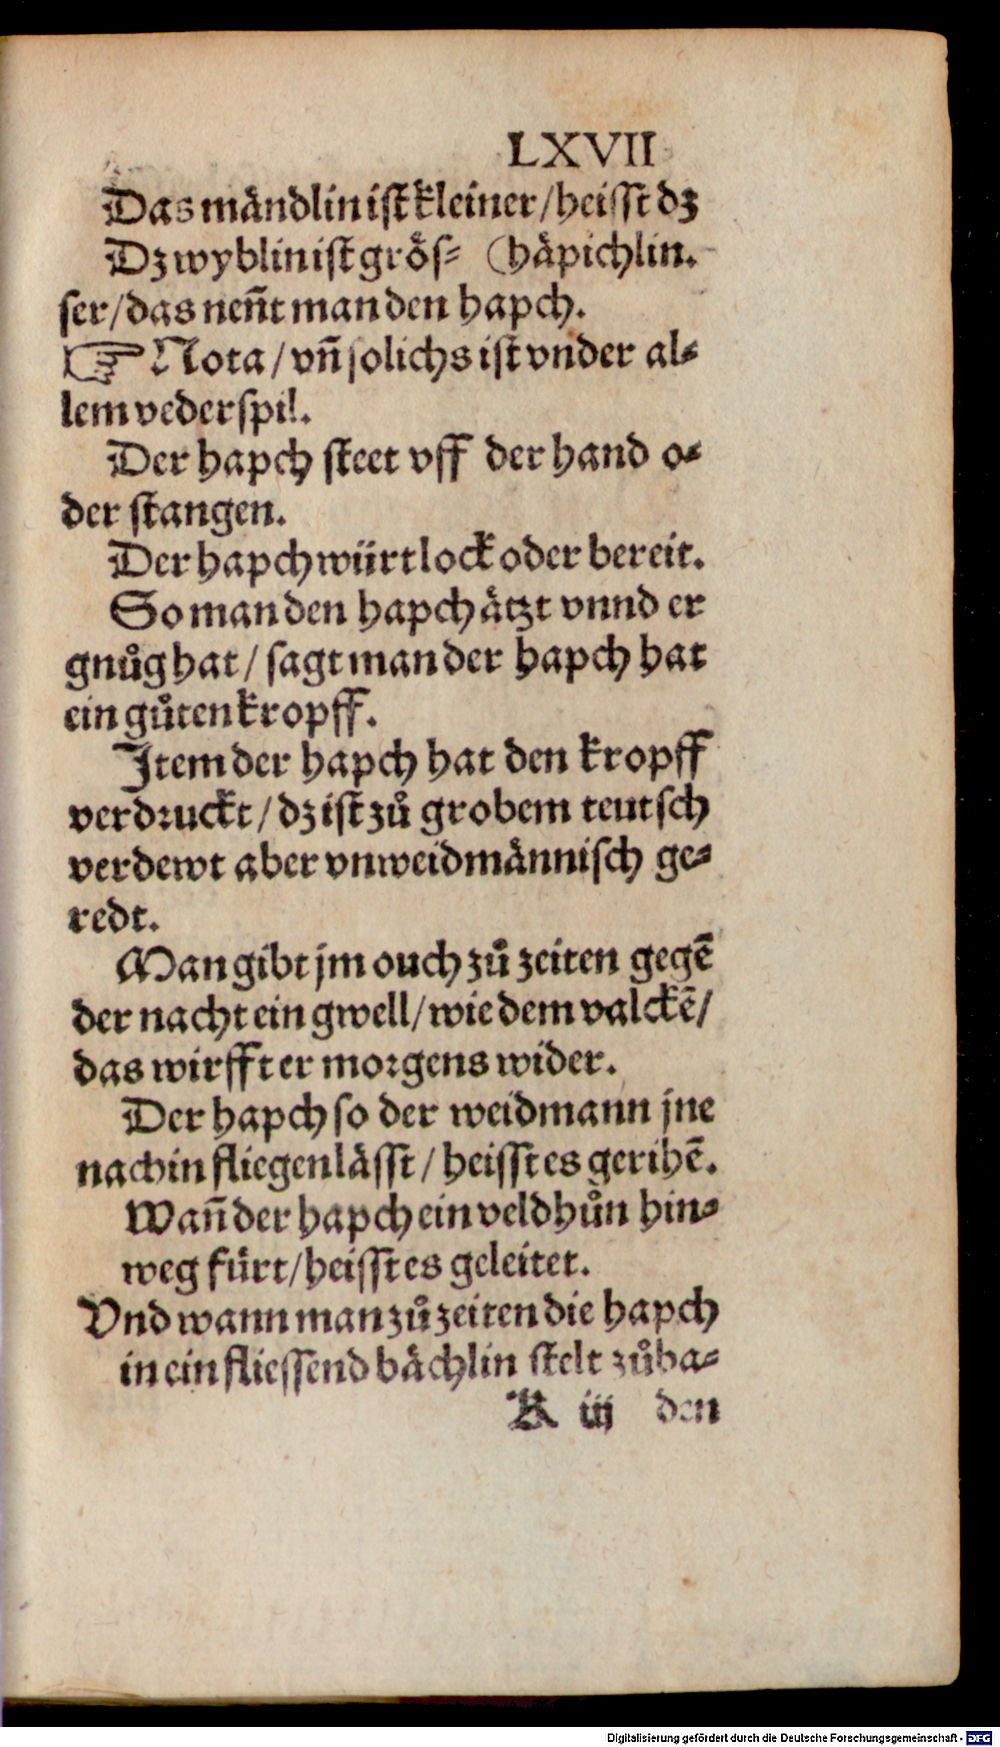 LXVII
Das mändlin ist kleiner/heisst dz
Dz wyblin ist grös⸗ (häpichlin.
ser/das neñt man den hapch.
☞ Nota/vñ solichs ist vnder al⸗
lem vederspil.
Der hapch steet vff der hand o⸗
der stangen.
Der hapch würt lock oder bereit.
So man den hapch ätzt vnnd er
gnůg hat/sagt man der hapch hat
ein gůten kropff.
Item der hapch hat den kropff
verdruckt/dz ist zů grobem teutsch
verdewt aber vnweidmännisch ge⸗
redt.
Man gibt jm ouch zů zeiten gegē
der nacht ein gwell/wie dem valckē/
das wirfft er morgens wider.
Der hapch so der weidmann jne
nachin fliegen lässt/heisst es gerihē.
Wañ der hapch ein veldhůn hin⸗
weg fürt/heisst es geleitet.
Vnd wann man zů zeiten die hapch
in ein fliessend bächlin stelt zů ba⸗
K iij den
Digitalisierung gefördert durch die Deutsche Forschungsgemeinschaft - DFG